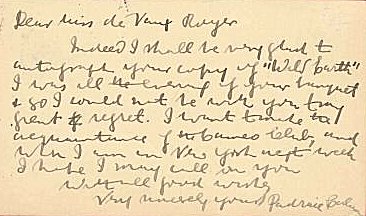 Dear Miss de Vaux Royer
Indeed I shall be very glad to
autograph your copy of "Wild Earth"
I was ill the evening of your banquet
& so I could not be with you to my
great regret. I want to make the
acquaintance of the Cameo Club, and
when I am in New York next week
I hope I may call on you
With all good wishes
Very sincerely yours Padraic Colum